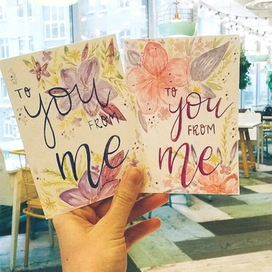 TO
you
FROM
me
TO
you
FROM
me